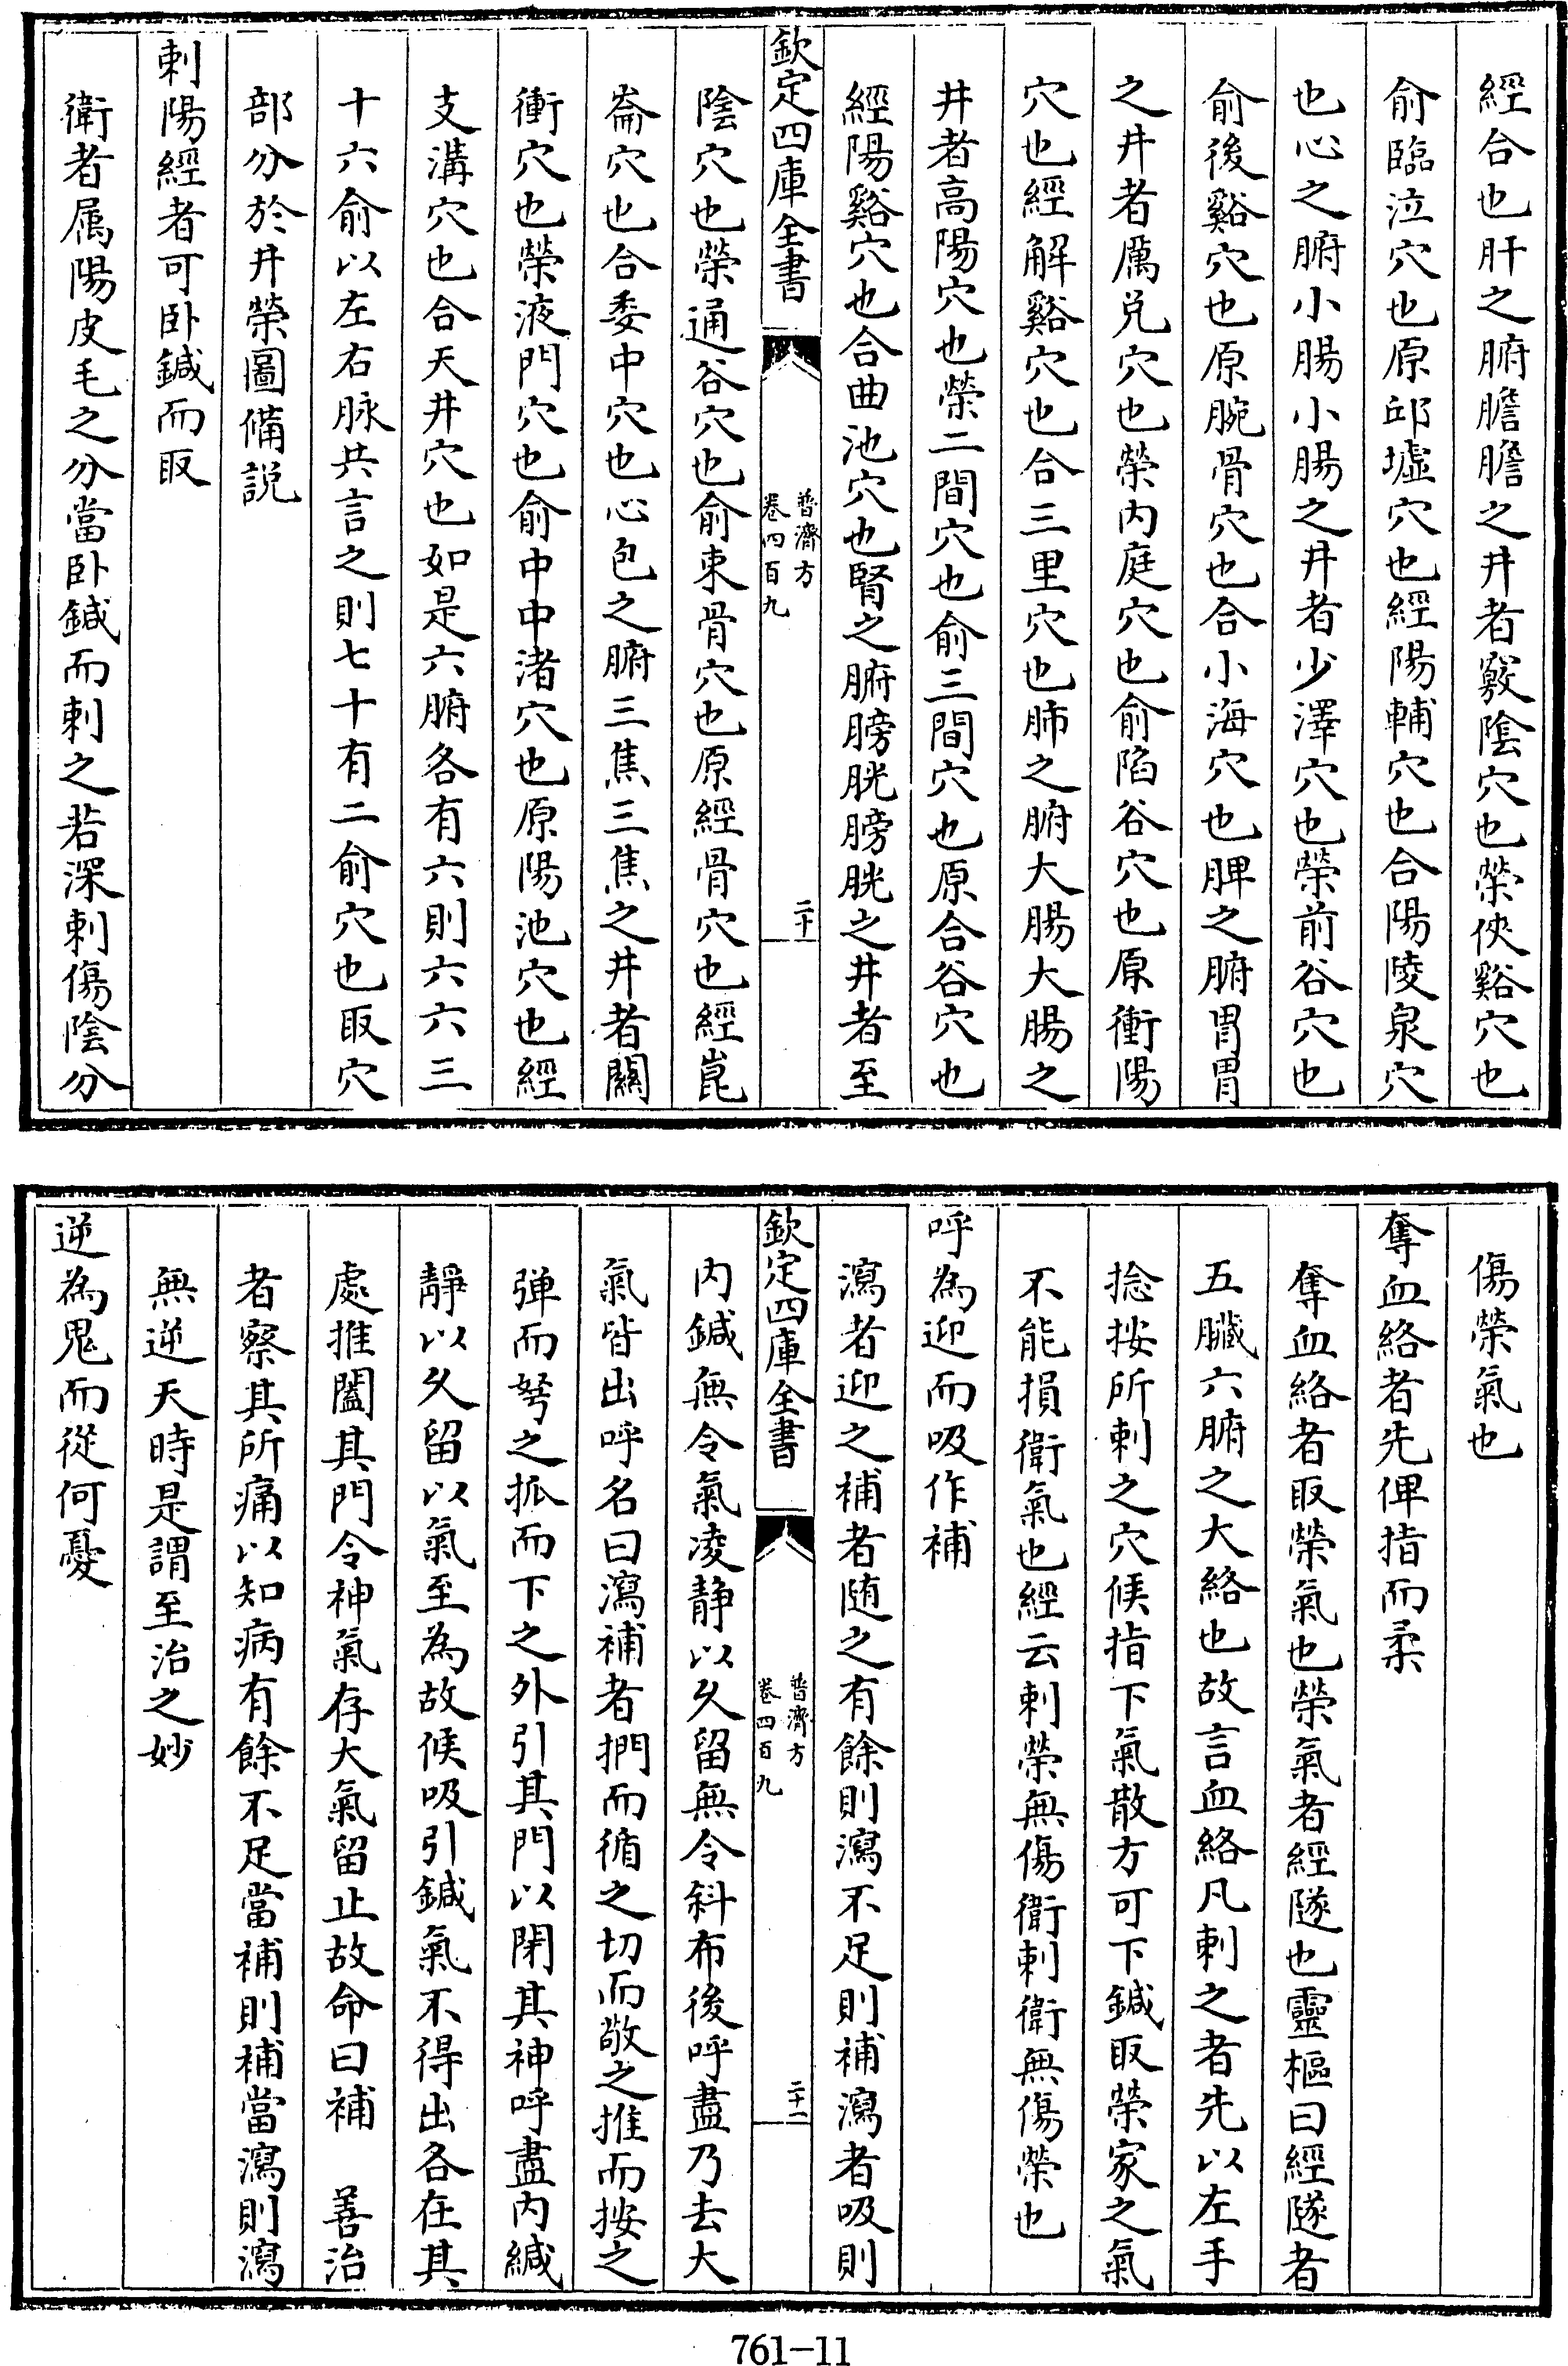 經合也肝之腑膽膽之井者竅陰穴也滎俠谿穴也
俞臨泣穴也原邱墟穴也經陽輔穴也合陽陵泉穴
也心之腑小腸小腸之井者少澤穴也滎前谷穴也
俞後谿穴也原腕骨穴也合小海穴也脾之腑胃胃
之井者厲兑穴也滎内庭穴也俞陷谷穴也原衝陽
穴也經解谿穴也合三里穴也肺之腑大腸大腸之
井者高陽穴也滎二間穴也俞三間穴也原合谷穴也
經陽谿穴也合曲池穴也腎之腑膀胱膀胱之井者至
欽定四庫全書
普濟方
卷四百九
二十
陰穴也滎通谷穴也俞束骨穴也原經骨穴也經崑
崙穴也合委中穴也心包之腑三焦三焦之井者關
衝穴也滎液門穴也俞中中渚穴也原陽池穴也經
支溝穴也合天井穴也如是六腑各有六則六六三
十六俞以左右脉共言之則七十有二俞穴也取穴
部分於井滎圖備説
刺陽經者可卧鍼而取
衛者属陽皮毛之分當卧鍼而刺之若深刺傷陰分
傷榮氣也
奪血絡者先俾指而柔
奪血絡者取榮氣也榮氣者經隧也靈樞曰經隧者
五臟六腑之大絡也故言血絡凡刺之者先以左手
捻按所刺之穴候指下氣散方可下鍼取榮家之氣
不能損衛氣也經云刺榮無傷衛刺衛無傷榮也
呼為迎而吸作補
瀉者迎之補者随之有餘則瀉不足則補瀉者吸則
欽定四庫全書
普濟方
卷四百九
二十一
内鍼無令氣凌静以久留無令斜布後呼盡乃去大
氣皆出呼名曰瀉補者捫而循之切而散之推而按之
弹而弩之抓而下之外引其門以閉其神呼盡内緘
靜以久留以氣至為故候吸引鍼氣不得出各在其
處推闔其門令神氣存大氣留止故命曰補　善治
者察其所痛以知病有餘不足當補則補當瀉則瀉
無逆天時是謂至治之妙
逆為鬼而從何憂
761-11